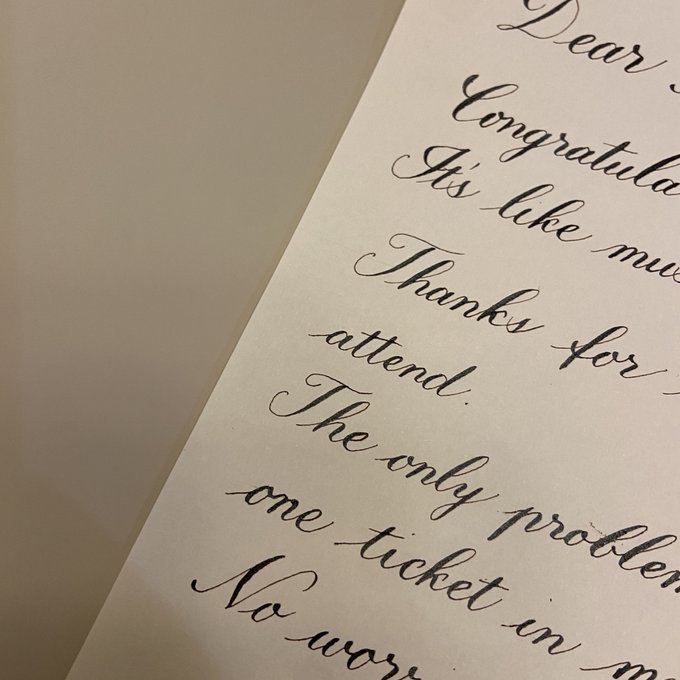 Dear
Congratula
It's like mus
Thanks for
attend.
The only problem
one ticket in m
No worr